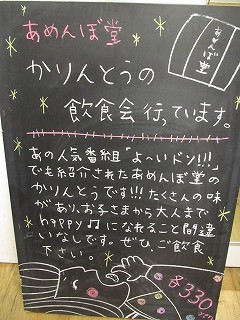 あめんぼ堂
あめんぼ堂
かりんとうの
飲食会行っています。
あの人気番組「よ～いドン!!!」
でも紹介されたあめんぼ堂の
かりんとうです!!!たくさんの味
があり、お子さまから大人まで
happy♫になれること間違
いなしです。ぜひ、ご飲食
下さい。
各330